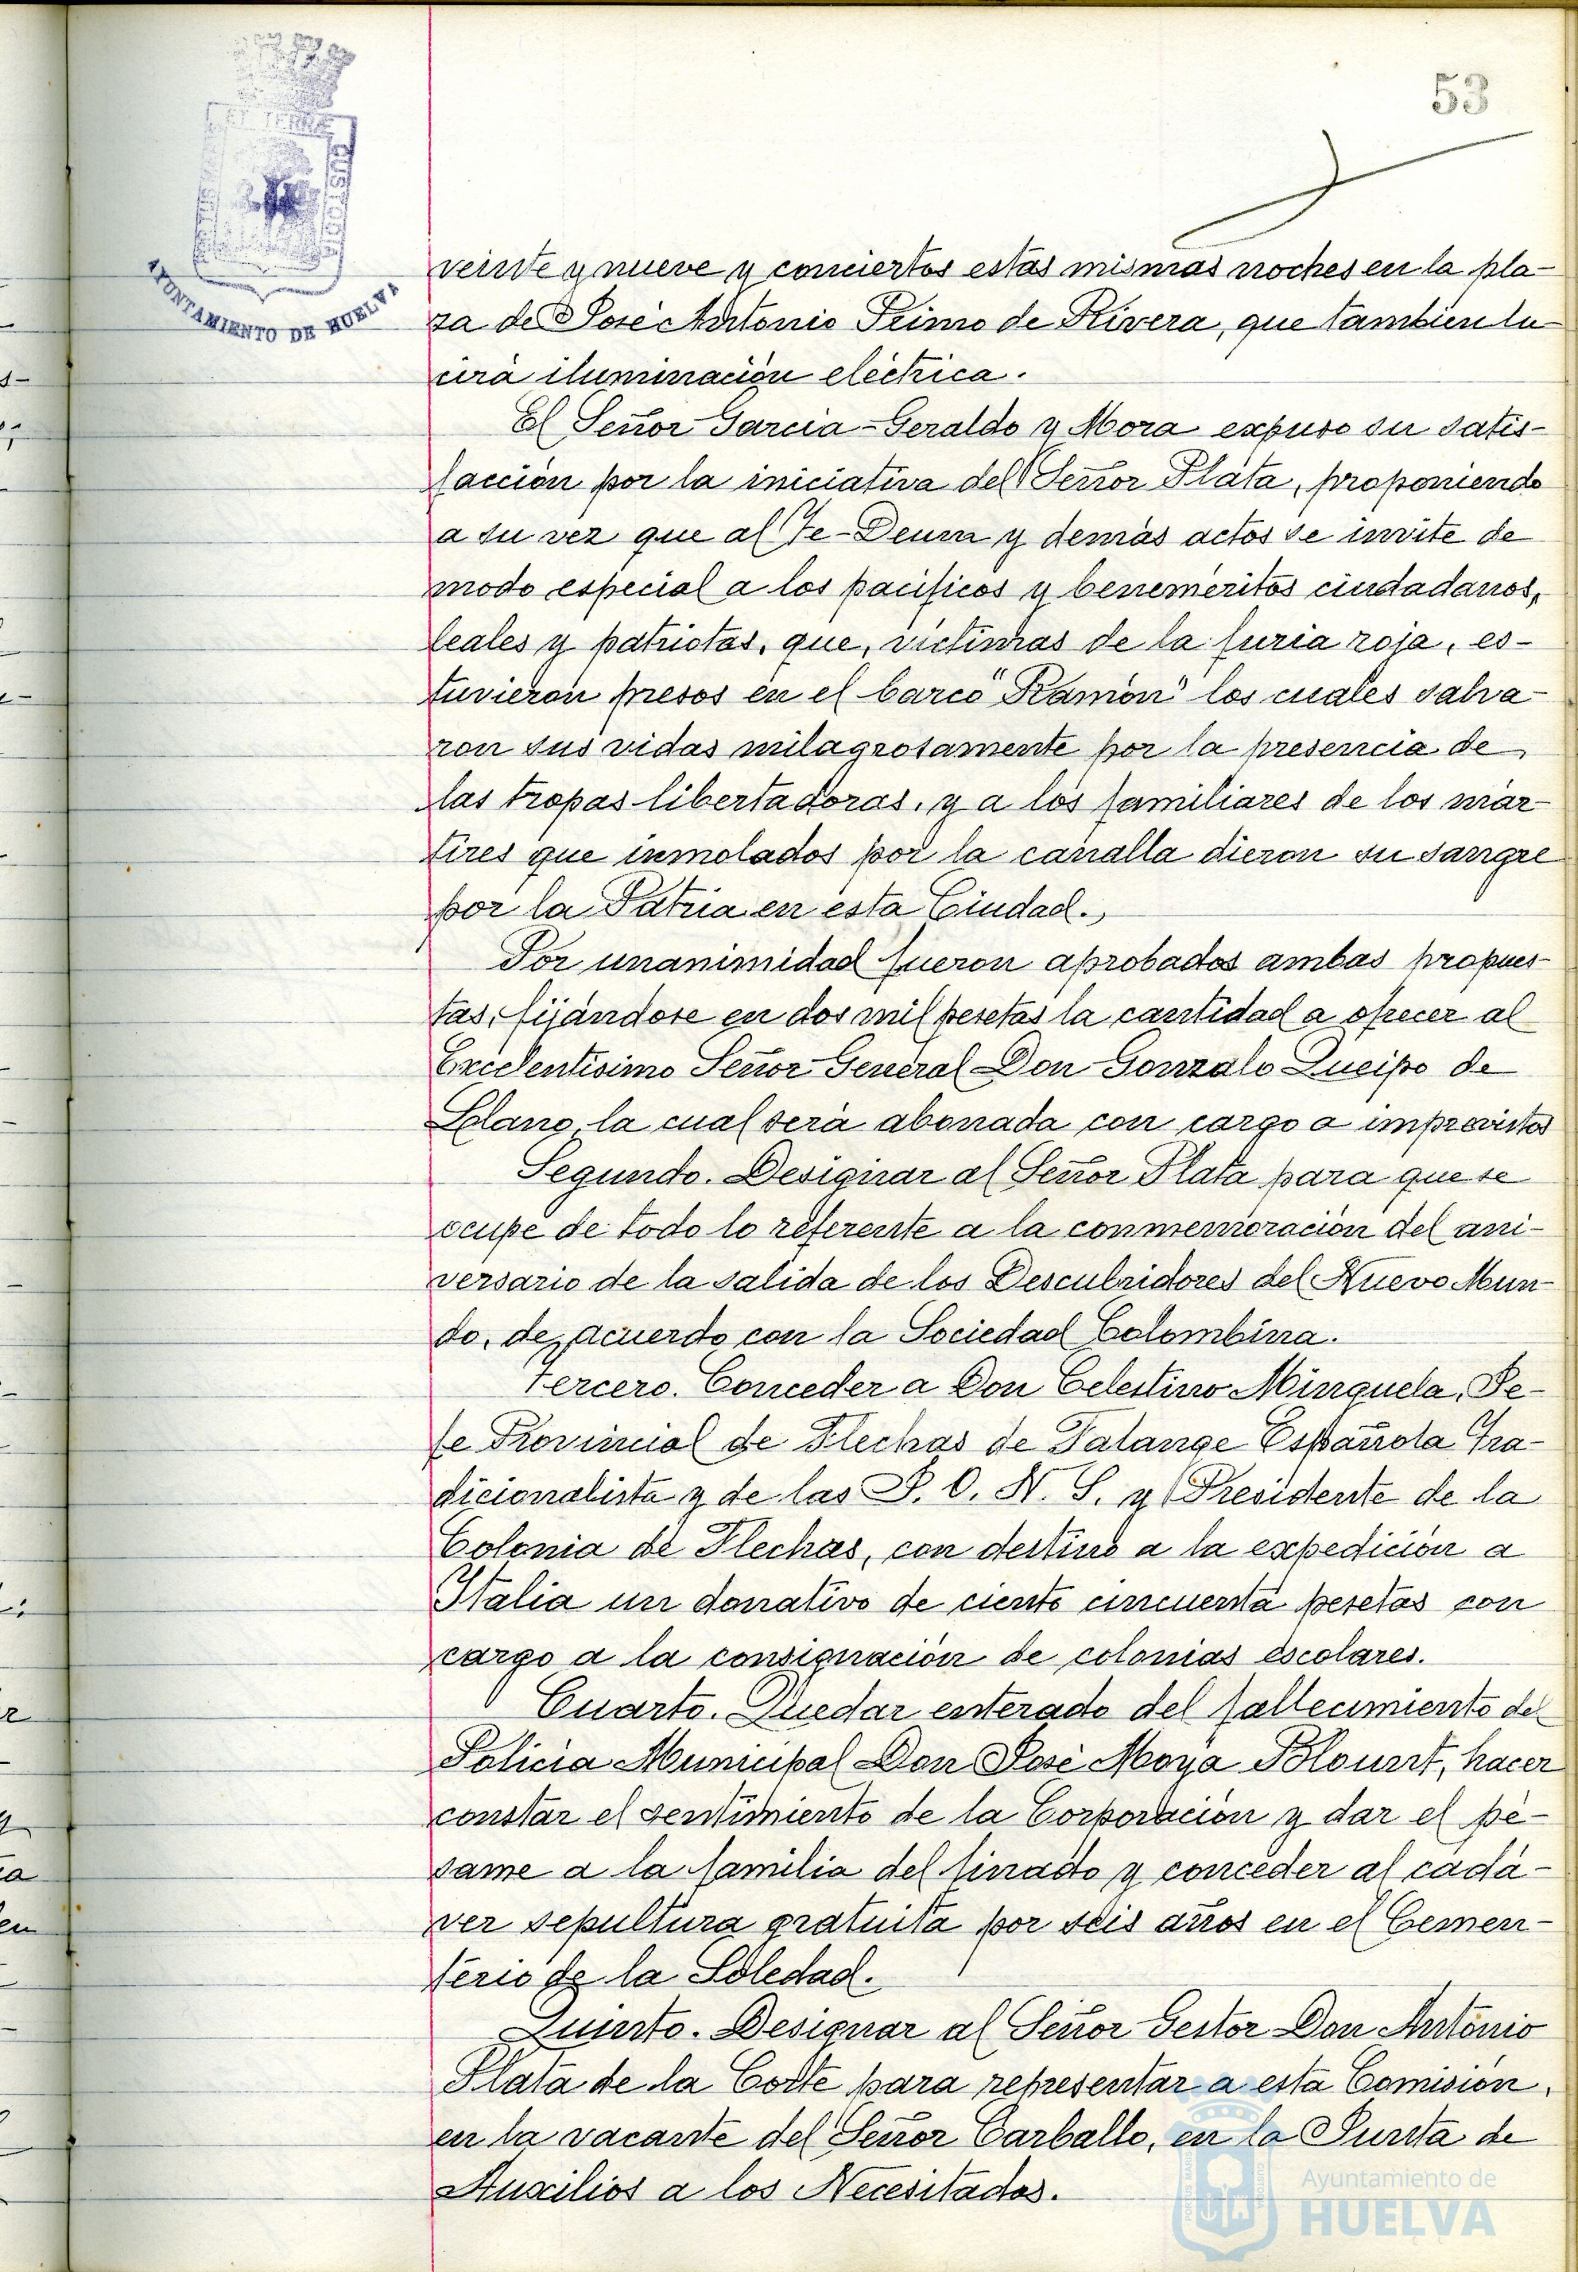 53
AYUNTAMIENTO DE HUELVA
veinte y nueve y conciertos estas mismas noches en la pla-
za de José Antonio Primo de Rivera, que tambien lu-
cirá iluminación eléctrica.
El Señor Garcia-Geraldo y Mora expuso su satis-
facción por la iniciativa del Señor Plata, proponiendo
a su vez que al Te-Deum y demás actos se invite de
modo especial a los pacificos y beneméritos ciudadanos,
leales y patriotas, que, victimas de la furia roja, es-
tuvieron presos en el barco "Ramón" los cuales salva-
ron sus vidas milagrosamente por la presencia de
las tropas libertadoras, y a los familiares de los már-
tires que inmolados por la canalla dieron su sangre
por la Patria en esta Ciudad.
Por unanimidad fueron aprobados ambas propues-
tas, fijándose en dos mil pesetas la cantidad a ofrecer al
Excelentisimo Señor General Don Gonzalo Queipo de
Llano, la cual será abonada con cargo a imprevistos
Segundo. Designar al Señor Plata para que se
ocupe de todo lo referente a la conmemoración del ani-
versario de la salida de los Descubridores del Nuevo Mun-
do, de acuerdo con la Sociedad Colombina.
Tercero. Conceder a Don Celestino Minguela, Je-
fe Provincial de Flechas de Falange Española Tra-
dicionalista y de las J. O. N. S. y Presidente de la
Colonia de Flechas, con destino a la expedición a
Italia un donativo de ciento cincuenta pesetas con
cargo a la consignación de colonias escolares.
Cuarto. Quedar enterado del fallecimiento del
Policia Municipal Don José Moya Blount, hacer
constar el sentimiento de la Corporación y dar el pé-
same a la familia del finado y conceder al cadá-
ver sepultura gratuita por seis años en el Cemen-
terio de la Soledad.
Quinto. Designar al Señor Gestor Don Antonio
Plata de la Corte para representar a esta Comisión,
en la vacante del Señor Carballo, en la Junta de
Auxilios a los Necesitados.
Ayuntamiento de
HUELVA